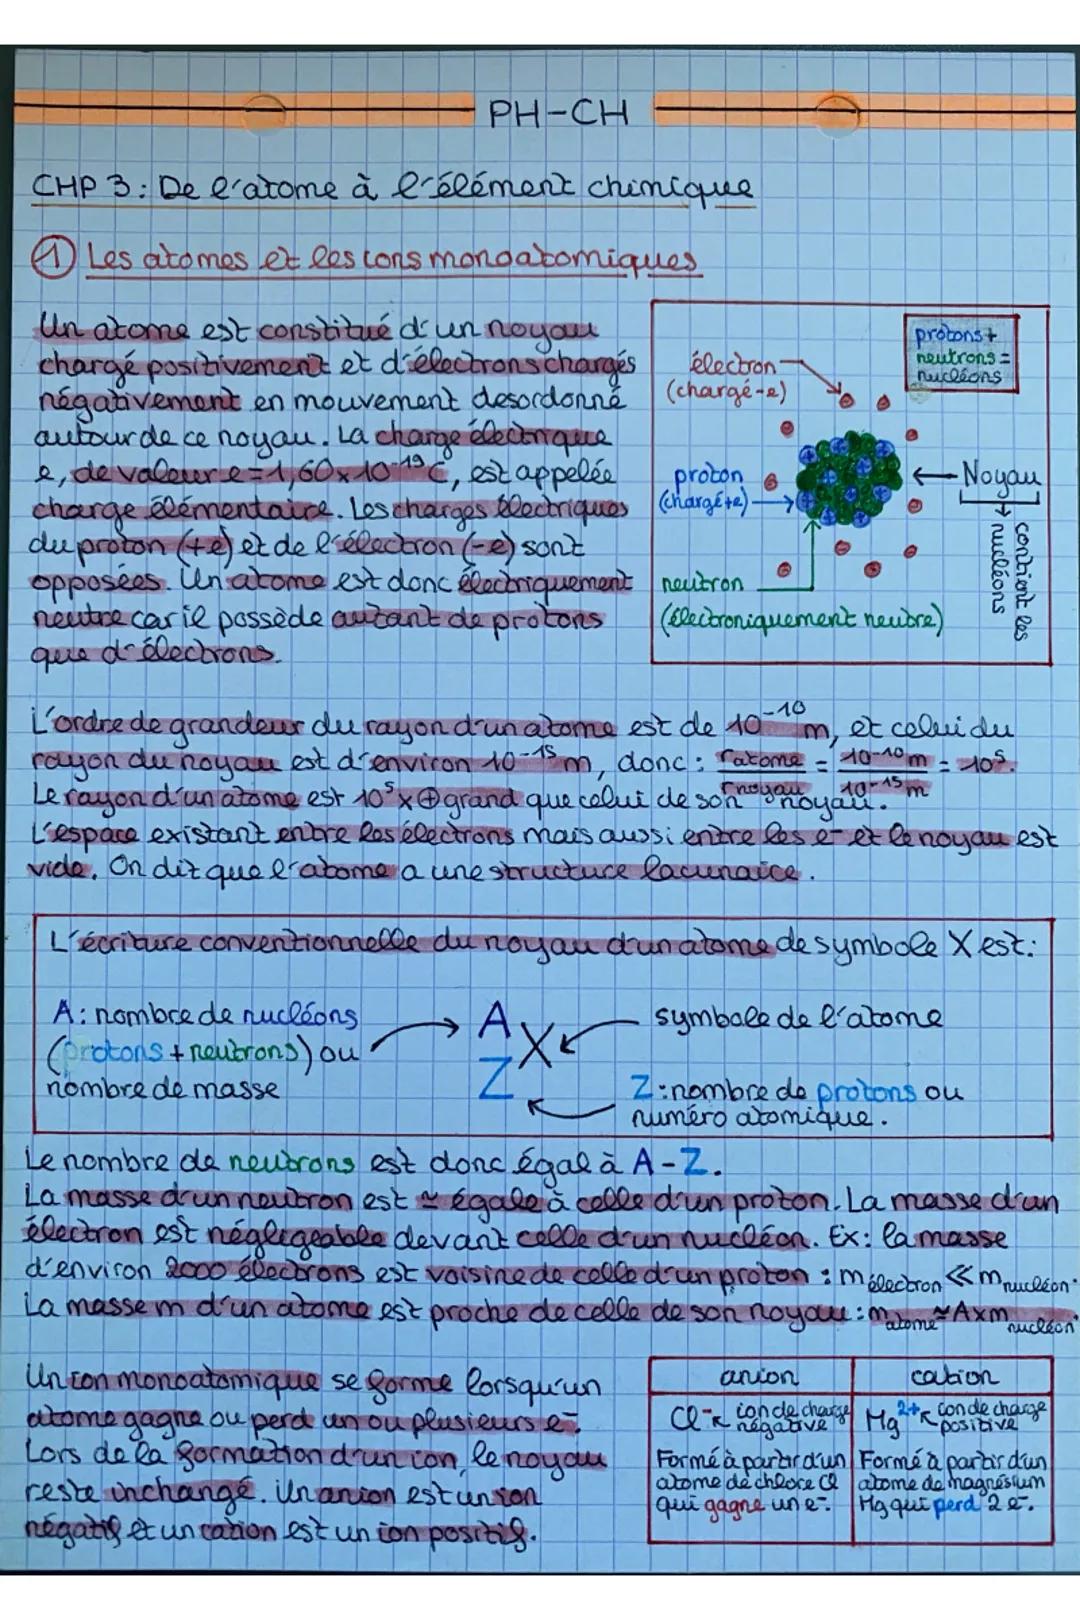 PH-CH
CHP 3: De l'atome à l'élément chimique
1 Les atomes et les ions monoatomiques
Un atome est constitué d'un noyau
chargé positivement et d'électrons chargés
négativement en mouvement desordonné
autour de ce noyau. La charge électrique
e, de valeur e=1,60×10⁻¹⁹ C, est appelée
charge élémentaire. Les charges électriques
du proton (+e) et de l'électron (-e) sont
opposées. Un atome est donc électriquement
neutre car il possède autant de protons
que d'électrons.
protons+
neutrons=
nucléons
électron
(chargé-e)
proton
(chargé+e)
Noyau
contient les
nucléons
neutron
(électroniquement neutre)
L'ordre de grandeur du rayon d'un atome est de 10⁻¹⁰ m, et celui du
rayon du noyau est d'environ 10⁻¹⁵ m, donc : ratome/rnoyau = 10⁻¹⁰m/10⁻¹⁵m = 10⁵.
Le rayon d'un atome est 10⁵ x ⊕ grand que celui de son noyau.
L'espace existant entre les électrons mais aussi entre les e⁻ et le noyau est
vide. On dit que l'atome a une structure lacunaire.
L'écriture conventionnelle du noyau d'un atome de symbole X est:
A: nombre de nucléons
(protons + neutrons) ou
nombre de masse
A
X
Z
symbole de l'atome
Z: nombre de protons ou
numéro atomique.
Le nombre de neutrons est donc égal à A-Z.
La masse d'un neutron est ≃ égale à celle d'un proton. La masse d'un
électron est négligeable devant celle d'un nucléon. Ex: la masse
d'environ 2000 électrons est voisine de celle d'un proton : mélectron << mnucléon.
La masse m d'un atome est proche de celle de son noyau : matome ≃ A×mnucléon.
Un ion monoatomique se forme lorsqu'un
atome gagne ou perd un ou plusieurs e⁻.
Lors de la formation d'un ion, le noyau
reste inchangé. Un anion est un ion
négatif et un cation est un ion positif.
anion
Cl⁻ ion de charge
négative
Formé à partir d'un
atome de chlore Cl
qui gagne un e⁻.
cation
Mg²⁺ ion de charge
positive
Formé à partir d'un
atome de magnésium
Mg qui perd 2 e⁻.